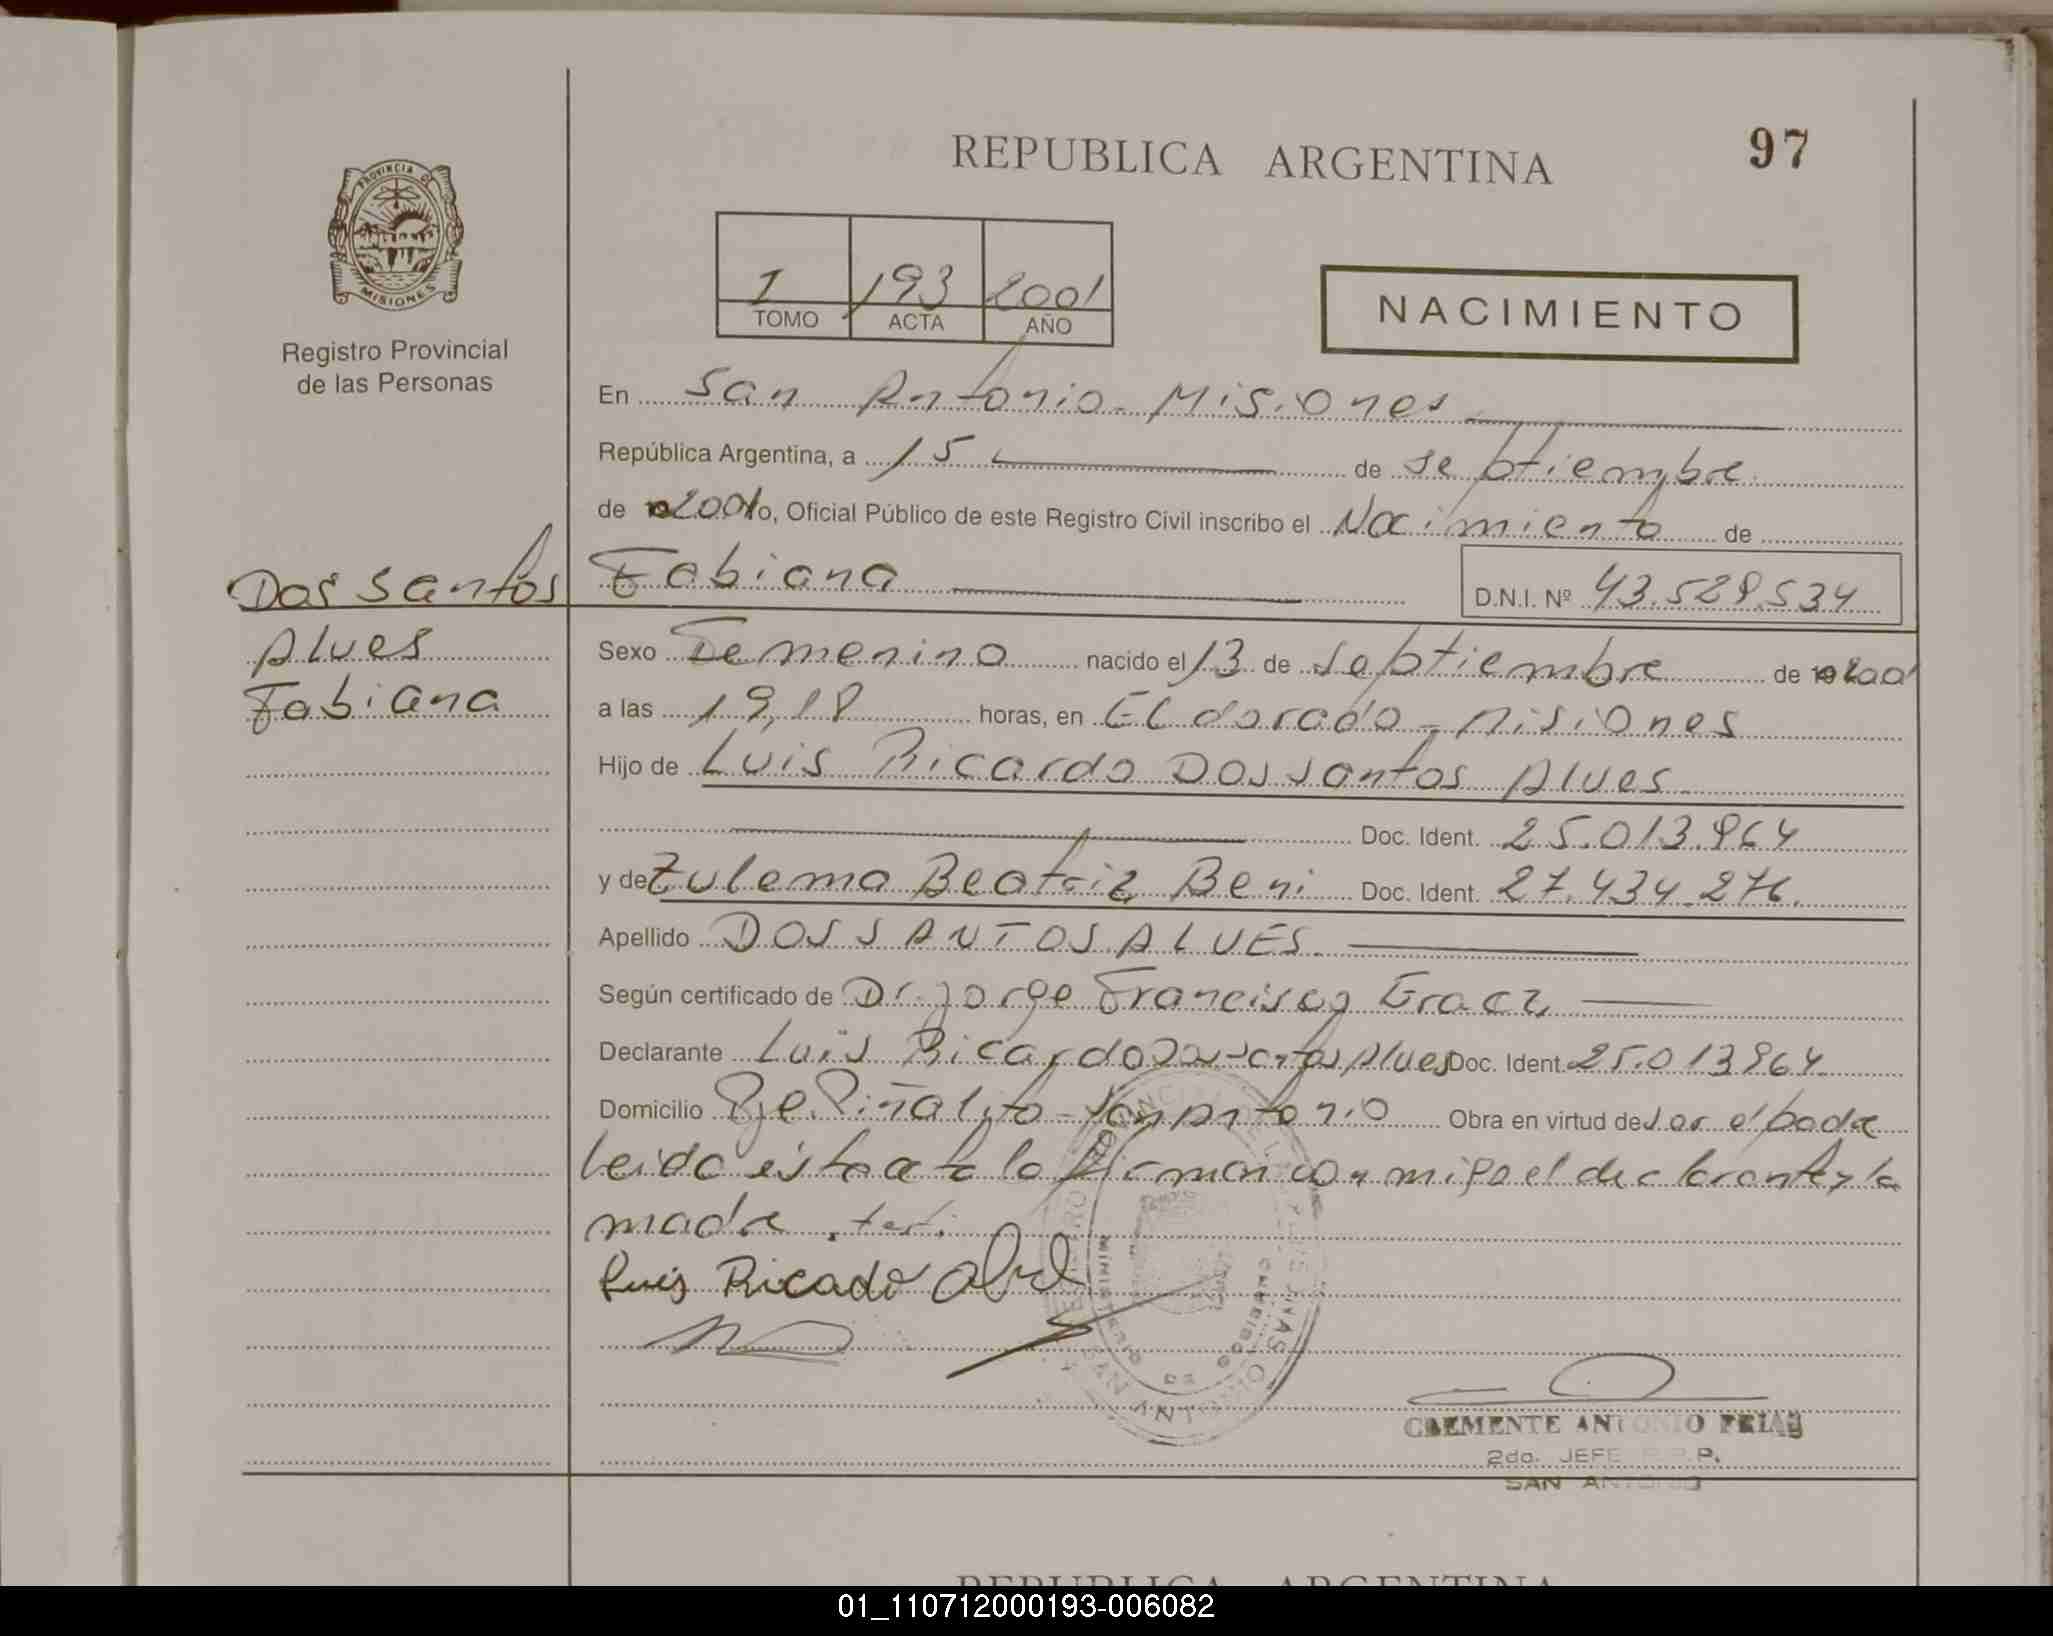 REPUBLICA ARGENTINA
97
PROVINCIA DE
MISIONES
Registro Provincial
de las Personas
1 193 2001
TOMO ACTA AÑO
NACIMIENTO
En San Antonio - Misiones
República Argentina, a 15 de septiembre
de 2001 yo, Oficial Público de este Registro Civil inscribo el Nacimiento de
Fabiana
D.N.I. Nº 43.528.534
Dos Santos
Alves
Fabiana
Sexo Femenino nacido el 13 de septiembre de 2001
a las 19,18 horas, en Eldorado - Misiones
Hijo de Luis Ricardo Dos santos Alves
Doc. Ident. 25.013.964
y de Zulema Beatriz Beni Doc. Ident. 27.434.276.
Apellido DOS SANTOS ALVES.
Según certificado de Dr. Jorge Francisco
Declarante Luis Ricardo Dos santos Alves Doc. Ident. 25.013964
Domicilio Pje. Piñalito - San Antonio Obra en virtud de ser el padre
leida esta acta la firman con migo el declarante y la
madre.
Luis Ricado
SAN ANTONIO
CLEMENTE ANTONIO FRIAS
2do. JEFE R.P.P.
SAN ANTONIO
REPUBLICA ARGENTINA
01_110712000193-006082